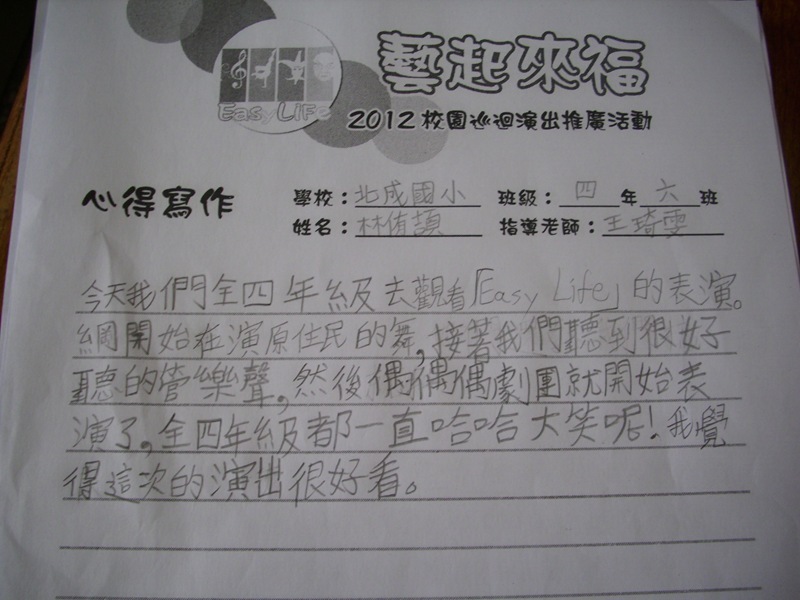 Easy Life
藝起來福
2012 校園巡迴演出推廣活動
心得寫作
學校：北成國小 班級：四年六班
姓名：林侑頡 指導老師：王琦雯
今天我們全四年級去觀看「Easy Life」的表演。
綱開始在演原住民的舞，接著我們聽到很好
聽的管樂聲，然後偶偶偶劇團就開始表
演了，全四年級都一直哈哈大笑呢！我覺
得這次的演出很好看。